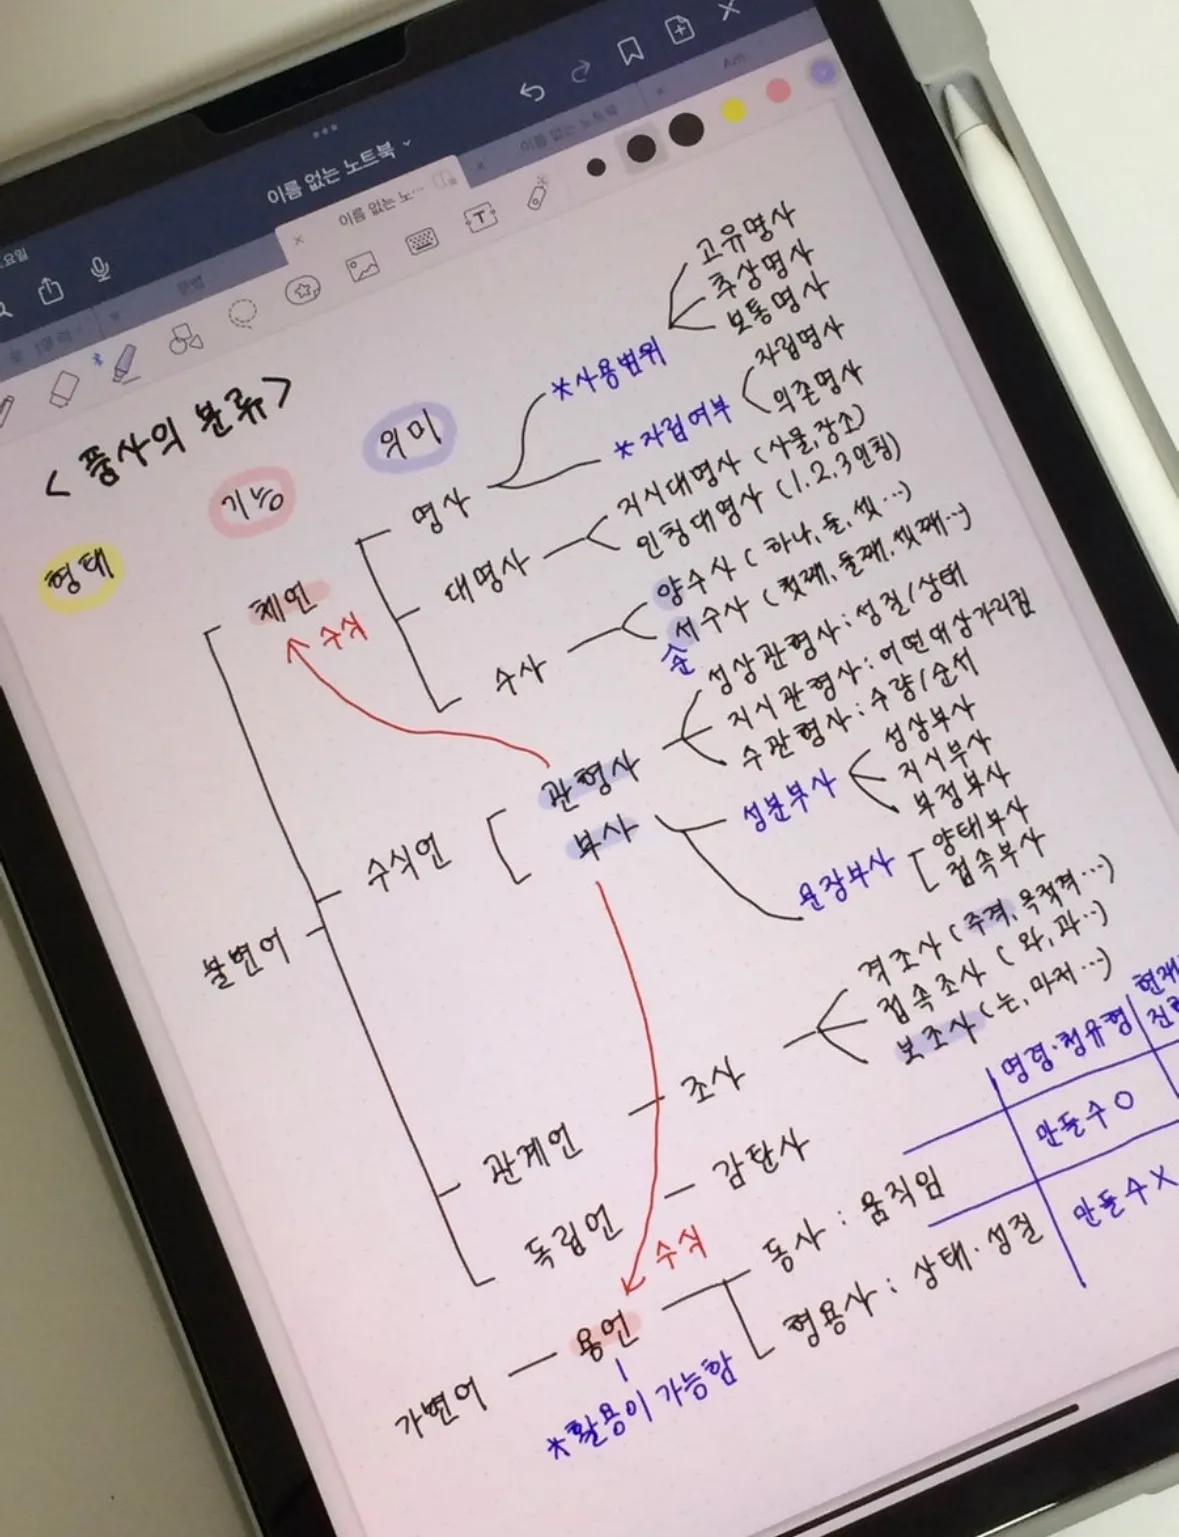 요일
이름 없는 노트북
이름 없는 노…
이름 없는 노트북
문법
<품사의 분류>
형태
기능
의미
불변어
체언
수식
명사
*사용범위
고유명사
추상명사
보통명사
*자립여부
자립명사
의존명사
대명사
지시대명사 (사물, 장소)
인칭대명사 (1.2.3인칭)
수사
양수사 (하나, 둘, 셋…)
서수사 (첫째, 둘째, 셋째…)
순
수식언
관형사
성상관형사 : 성질/상태
지시관형사 : 어떤대상가리킴
수관형사 : 수량/순서
부사
성분부사
성상부사
지시부사
부정부사
문장부사
양태부사
접속부사
관계언
조사
격조사 (주격, 목적격…)
접속조사 (와, 과…)
보조사 (는, 마저…)
독립언
감탄사
가변어
용언
수식
*활용이 가능함
동사 : 움직임
형용사 : 상태·성질
명령·청유형
현재
만들수 O
만들수 X